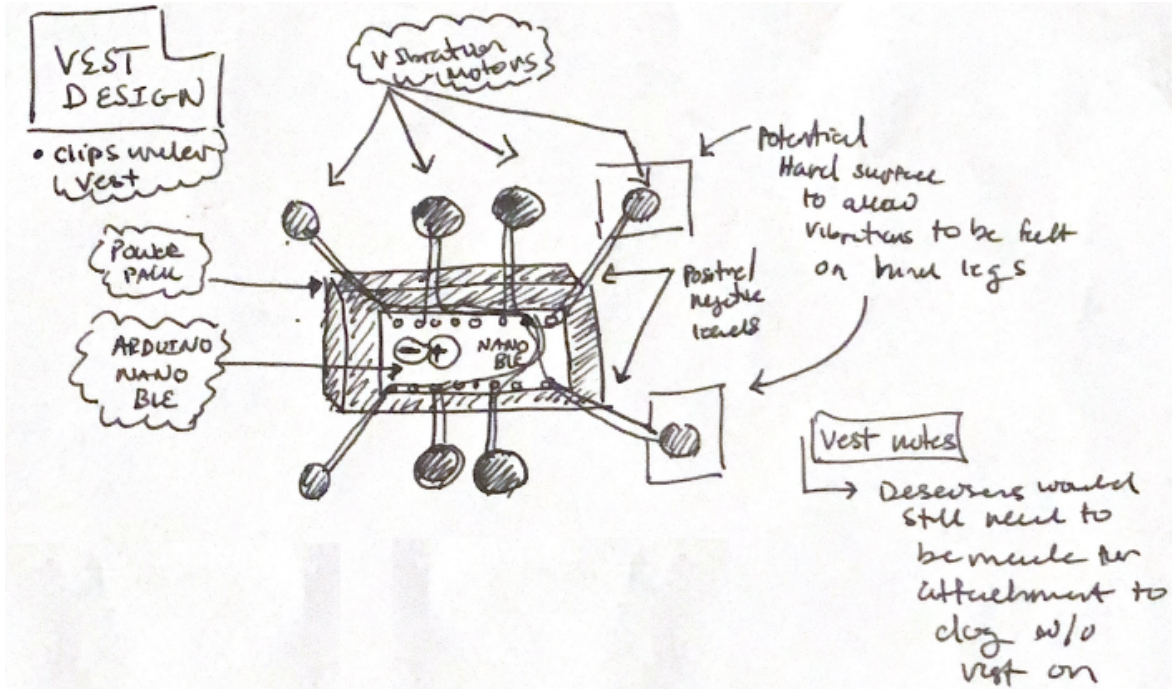 VEST
DESIGN
• Clips under
Vest
Vibration
Motors
Power
Pack
ARDUINO
NANO
BLE
NANO
BLE
- +
Potential
Hard surface
to allow
vibrations to be felt
on hind legs
Positive/
negative
Vest notes
would
still need to
be made for
attachment to
dog w/o
vest on